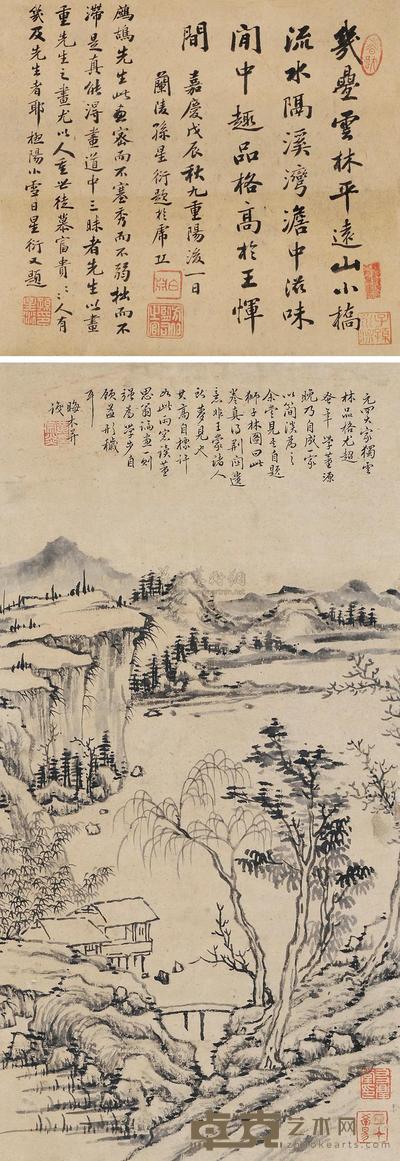 幾疊雲林平遠山小橋
流水隔溪灣澹中滋味
閒中趣品格高於王惲
間
嘉慶戊辰秋九重陽後一日
蘭陵孫星衍題於虎丘
鷓鴣先生此畫密而不塞秀而不弱拙而不
滯是真能得畫道中三昧者先生以畫
重先生之畫尤以人重世徒慕富貴人有
幾及先生者耶 陽小雪日星衍又題
元四家獨雲
林品格尤超
卒年學董源
晚乃自成一家
以簡淡為之
余嘗見其自題
獅子林圖曰此
卷真得荊關遺
意非王蒙諸人
所夢見也
其高自標許
如此雨窗讀董
思翁論畫一則
漫為學步自
顧益形穢
耳
晦木并
識
卓克艺术网